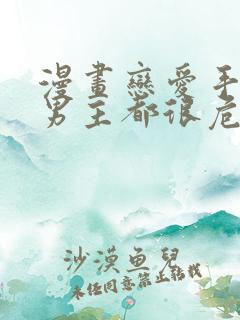 漫畫戀愛手
男主都很危
沙漠魚兒
未经同意禁止转载